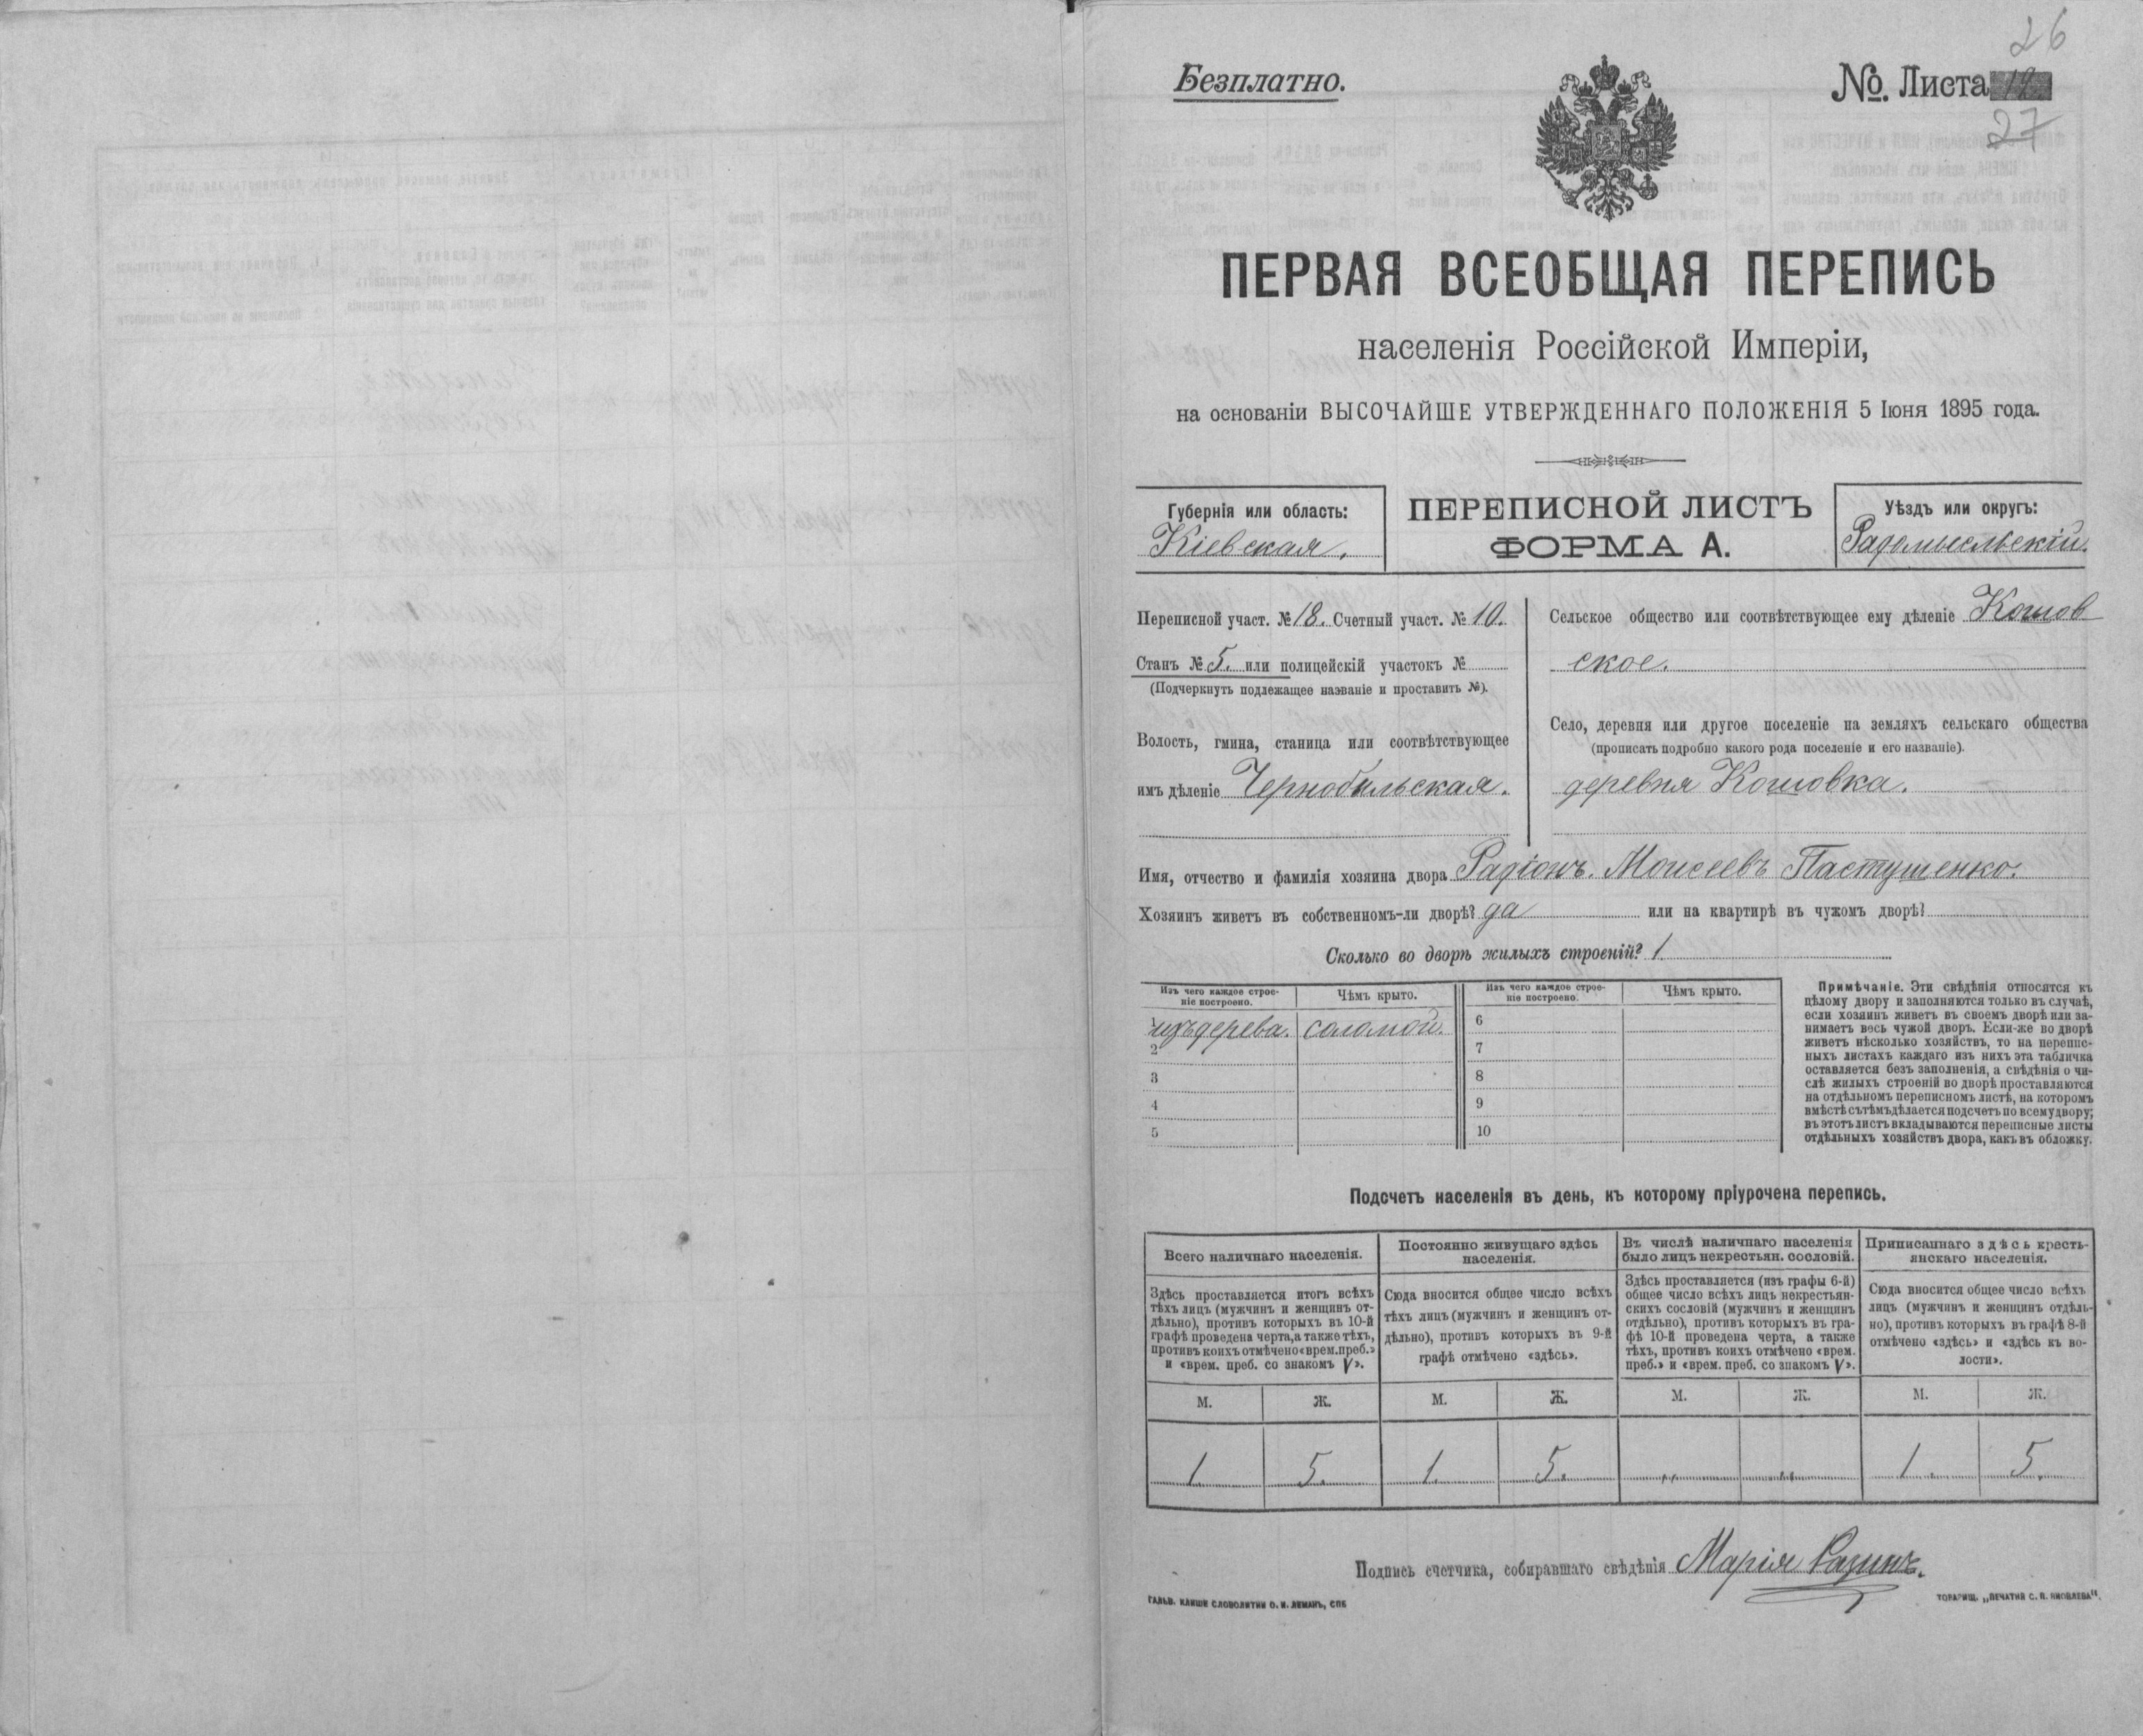 26
Безплатно.
№. Листа 12
27
ПЕРВАЯ ВСЕОБЩАЯ ПЕРЕПИСЬ
населенія Россійской Имперіи,
на основаніи ВЫСОЧАЙШЕ УТВЕРЖДЕННАГО ПОЛОЖЕНІЯ 5 Іюня 1895 года.
Губернія или область:
Кіевская.
ПЕРЕПИСНОЙ ЛИСТЪ
ФОРМА А.
Уѣздъ или округъ:
Радомысльскій.
Переписной участ. № 18. Счетный участ. № 10.
Станъ № 5. или полицейскій участокъ №
(Подчеркнуть подлежащее названіе и проставить №).
Волость, гмина, станица или соотвѣтствующее
имъ дѣленіе Чернобыльская.
Сельское общество или соотвѣтствующее ему дѣленіе Кошов
ское.
Село, деревня или другое поселеніе на земляхъ сельскаго общества
(прописать подробно какого рода поселеніе и его названіе).
деревня Кошовка.
Имя, отчество и фамилія хозяина двора Радіонъ. Моисеевъ Пастушенко.
Хозяинъ живетъ въ собственномъ-ли дворѣ? да или на квартирѣ въ чужомъ дворѣ?
Сколько во дворѣ жилыхъ строеній? 1
Изъ чего каждое строе-
ніе построено.
Чѣмъ крыто.
Изъ чего каждое строе-
ніе построено.
Чѣмъ крыто.
изъ дерева. соломой. 6
2 7
3 8
4 9
5 10
Примѣчаніе. Эти свѣдѣнія относятся къ
цѣлому двору и заполняются только въ случаѣ,
если хозяинъ живетъ въ своемъ дворѣ или за-
нимаетъ весь чужой дворъ. Если-же во дворѣ
живетъ нѣсколько хозяйствъ, то на перепис-
ныхъ листахъ каждаго изъ нихъ эта табличка
оставляется безъ заполненія, а свѣдѣнія о чи-
слѣ жилыхъ строеній во дворѣ проставляются
на отдѣльномъ переписномъ листѣ, на которомъ
вмѣстѣ съ тѣмъ дѣлается подсчетъ по всему двору;
въ этотъ листъ вкладываются переписные листы
отдѣльныхъ хозяйствъ двора, какъ въ обложку.
Подсчетъ населенія въ день, къ которому пріурочена перепись.
Всего наличнаго населенія.
Здѣсь проставляется итогъ всѣхъ
тѣхъ лицъ (мужчинъ и женщинъ от-
дѣльно), противъ которыхъ въ 10-й
графѣ проведена черта, а также тѣхъ,
противъ коихъ отмѣчено «врем. преб.»
и «врем. преб. со знакомъ V».
Постоянно живущаго здѣсь
населенія.
Сюда вносится общее число всѣхъ
тѣхъ лицъ (мужчинъ и женщинъ от-
дѣльно), противъ которыхъ въ 9-й
графѣ отмѣчено «здѣсь».
Въ числѣ наличнаго населенія
было лицъ некрестьян. сословій.
Здѣсь проставляется (изъ графы 6-й)
общее число всѣхъ лицъ некрестьян-
скихъ сословій (мужчинъ и женщинъ
отдѣльно), противъ которыхъ въ гра-
фѣ 10-й проведена черта, а также
тѣхъ, противъ коихъ отмѣчено «врем.
преб.» и «врем. преб. со знакомъ V».
Приписаннаго здѣсь кресть-
янскаго населенія.
Сюда вносится общее число всѣхъ
лицъ (мужчинъ и женщинъ отдѣль-
но), противъ которыхъ въ графѣ 8-й
отмѣчено «здѣсь» и «здѣсь къ во-
лости».
М. Ж. М. Ж. М. Ж. М. Ж.
1 5. 1. 5. „ „ 1 5.
Подпись счетчика, собиравшаго свѣдѣнія Марія
ГАЛЬВ. КЛИШЕ СЛОВОЛИТНИ О. И. ЛЕМАНЪ, СПБ
ТОВАРИЩ. „ПЕЧАТНЯ С. П. ЯКОВЛЕВА".